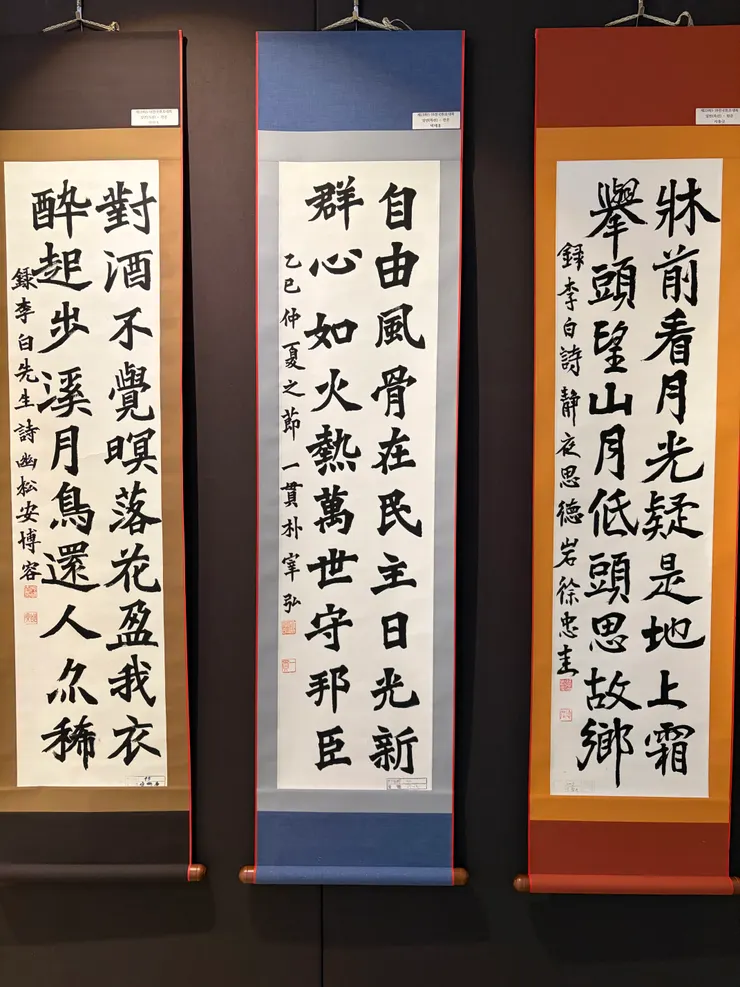 牀前看月光疑是地上霜
擧頭望山月低頭思故鄉
録李白詩靜夜思德岩徐忠圭
自由風骨在民主日光新
群心如火熱萬世守邦臣
乙巳仲夏之節一貫朴宰弘
對酒不覺暝落花盈我衣
醉起步溪月鳥還人亦稀
録李白先生詩幽松安博容